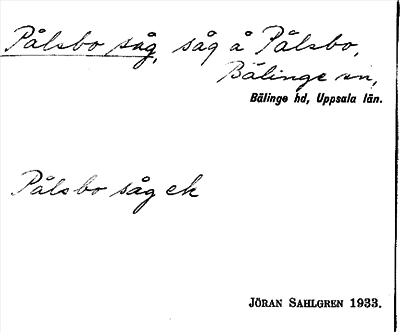 Pålsbo såg, såg å Pålsbo,
Bälinge sn,
Bälinge hd, Uppsala län.
Pålsbo såg ek
JÖRAN SAHLGREN 1933.